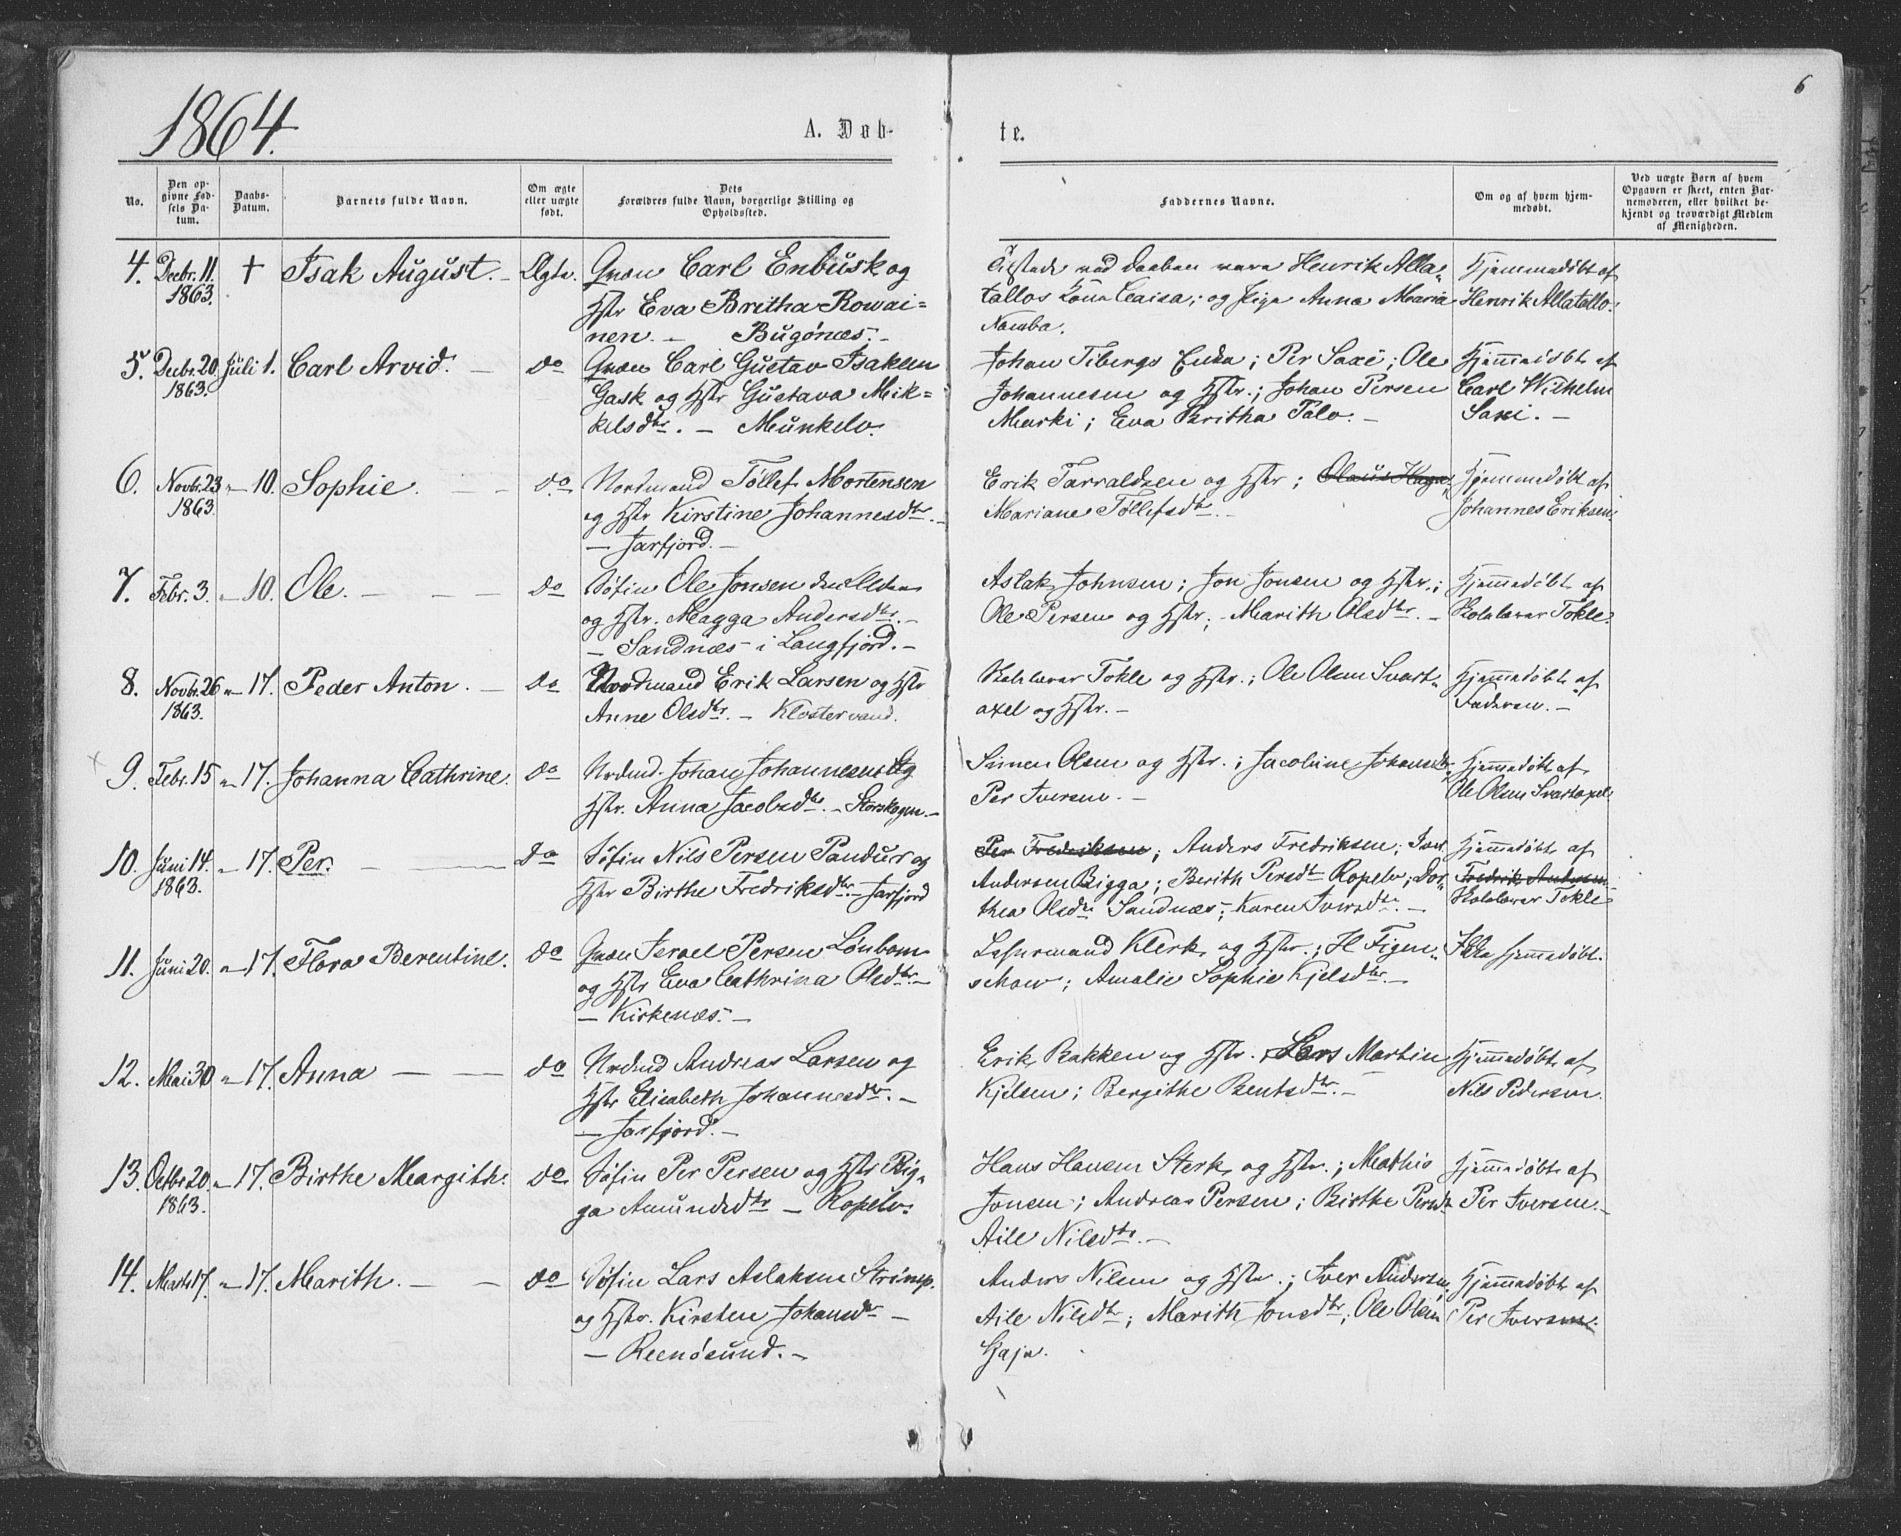 6
1864.
A. Døb-
te.
No.
Den op-
givne Fød-
sels Da-
tum.
Daabs-
Datum.
Barnets fulde Navn.
Om ægte
eller uægte
født.
Dets
Forældres fulde Navn, borgerlige Stilling og
Opholdssted.
Faddernes Navne.
Om og af hvem hjem-
medøbt.
Ved uægte Børn af hvem
Opgaven er skeet, enten Bar-
nemoderen, eller hvilket be-
kjendt og troværdigt Medlem
af Menigheden.
4. Decbr. 11. † Isak August. – Ægte. Qvæn Carl Enbusk og
1863.
Hstr Eva Britha Rowai=
nen. – Bugønæs. –
Tilstede ved Daaben vare Henrik Alla=
tallos Kone Caisa; og Pige Anna Maria
Namba.
Hjemmedøbt af
Henrik Allatallo.
5. Decbr. 20. Juli 1. Carl Arvid. – do Qvæn Carl Gustav Isaksen
1863.
Gask og Hstr Gustava Mik=
kelsdtr. – Munkelv.
Johan Tibergs Enke; Per Saxi; Ole
Johannesen og Hstr.; Johan Persen
Marski; Eva Britha Talo. –
Hjemmedøbt af
Carl Wilhelm
Saxi. –
6. Novbr. 23 " 10. Sophie. – – do Nordmand Tøllef Mortensen
1863.
og Hstr Kirstine Johannesdtr. –
– Jarfjord. –
Erik Tarraldsen og Hstr; Olaus Haga;
Mariane Tøllefsdtr. –
Hjemmedøbt af
Johannes Eriksen.
7. Febr. 3. " 10. Ole. – – – do Søfin Ole Jonsen den Ældre
og Hstr. Magga Andersdtr. –
– Sandnæs i Langfjord. –
Aslak Johnsen; Jon Jonsen og Hstr.;
Ole Persen og Hstr; Marith Olsdtr. –
Hjemmedøbt af
Skolelærer Tokle.
8. Novbr. 26 " 17. Peder Anton. – do Nordmand Erik Larsen og Hstr
1863.
Anne Olsdtr. – Klostervand.
Skolelærer Tokle og Hstr.; Ole Olsen Svart=
axel og Hstr. –
Hjemmedøbt af
Faderen. –
9. Febr. 15 " 17. Johanna Cathrine. do Nrdmd. Johan Johannesen og
Hstr. Anna Jacobsdtr. – Storskogen. –
Simen Olsen og Hstr.; Jacobine Johansdtr;
Per Iversen. –
Hjemmedøbt af
Ole Olsen Svartaxel
10. Juni 14. " 17. Per. – do Søfin Nils Persen Pandur og
1863.
Hstr Birthe Fredriksdtr. – Jarfjord
Per Fredriksen; Anders Fredriksen;
Andersen Bigga; Berith Persdtr Kopelv; Dor=
thea Olsdtr Sandnæs; Karen Iversdtr. –
Hjemmedøbt af
Fredrik Andersen
Skolelærer Tokle
11. Juni 20. " 17. Flora Berentine. do Qvæn Israel Persen Lønbom
og Hstr Eva Cathrina Olsdtr. –
– Kirkenæs. –
Lensmand Klerk og Hstr.; H. Figen=
schow; Amalie Sophie Kjelsdtr. –
Ikke hjemmedøbt.
12. Mai 30 " 17. Anna – – do Nrdmd Andreas Larsen og
Hstr Elisabeth Johannesdtr. –
– Jarfjord. –
Erik Bakken og Hstr. Lars Martin
Kjelsen; Bergithe Bentsdtr. –
Hjemmedøbt af
Nils Pedersen.
13. Octbr. 20. " 17. Birthe Margith. do Søfin Per Persen og Hstr Big=
1863.
ga Amundsdtr – Kopelv.
Hans Hansen Sterk og Hstr.; Mathis
Jonsen; Andreas Persen; Birthe Persdtr
Aile Nilsdtr. –
Hjemmedøbt af
Per Iversen. –
14. Marts 17. " 17. Marith. – – do Søfin Lars Aslaksen Strømp.
og Hstr. Kirsten Johansdtr –
– Reenøsund. –
Anders Nilsen og Hstr.; Iver Andersen;
Aile Nilsdtr; Marith Jonsdtr; Ole Olsen
Gaja.
Hjemmedøbt af
Per Iversen.